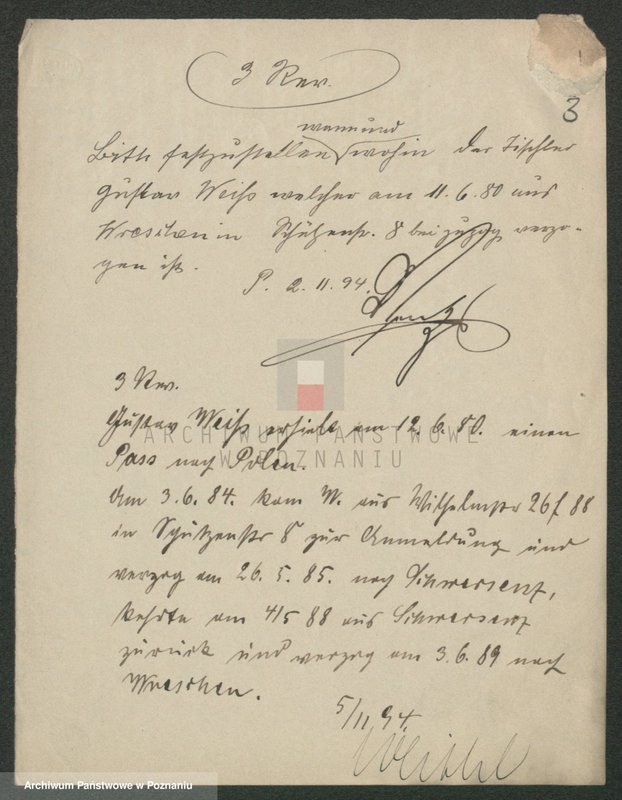 3 Rev.
3
wann und
Bitte festzustellen wohin der Tischler
Gustav Weiß welcher am 11.6.80 aus
Wreschen in Schützenstr. 8 bei zuzog verzo-
gen ist.
P. 2.11.94.
3 Rev.
Gustav Weiß erhielt am 12.6.80. einen
Pass nach Polen.
Am 3.6.84. kam W. aus Wilhelmstr 26 f 88
in Schützenstr 8 zur Anmeldung und
verzog am 26.5.85. nach Schwersenz,
kehrte am 4/5 88 aus Schwersenz
zurück und verzog am 3.6.89 nach
Wreschen.
5/11.94.
ARCHIWUM PAŃSTWOWE
W POZNANIU
Archiwum Państwowe w Poznaniu